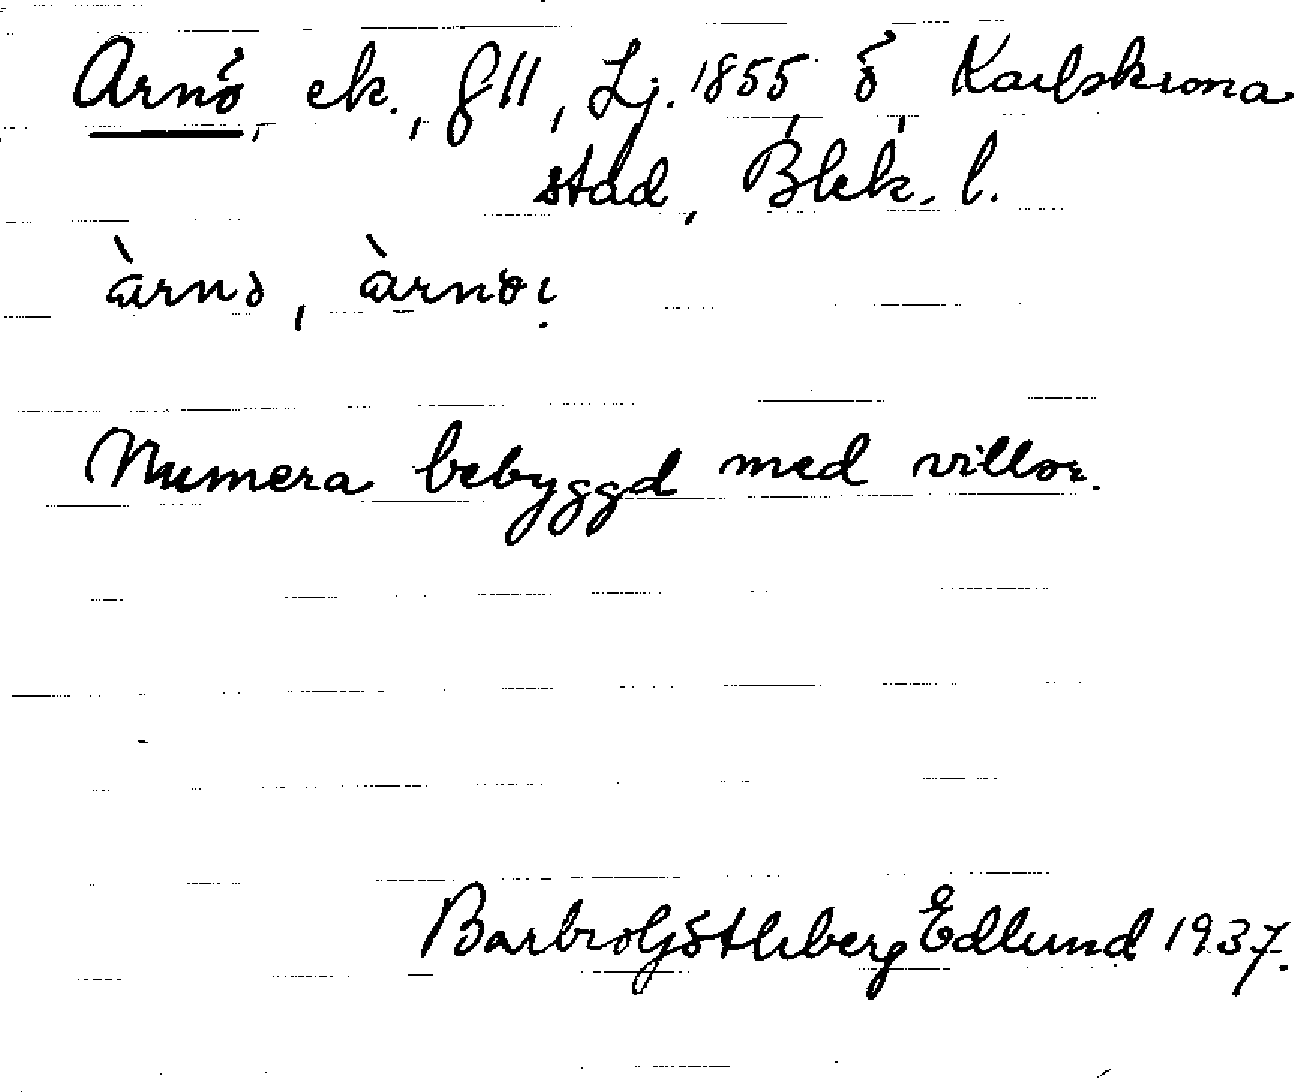 Arnö, ek., f 11, Lj. 1855, ö, Karlskrona
stad, Blek. l.
àrnə, àrnøı.
Numera bebyggd med villor.
Barbro Götlberg Edlund 1937.